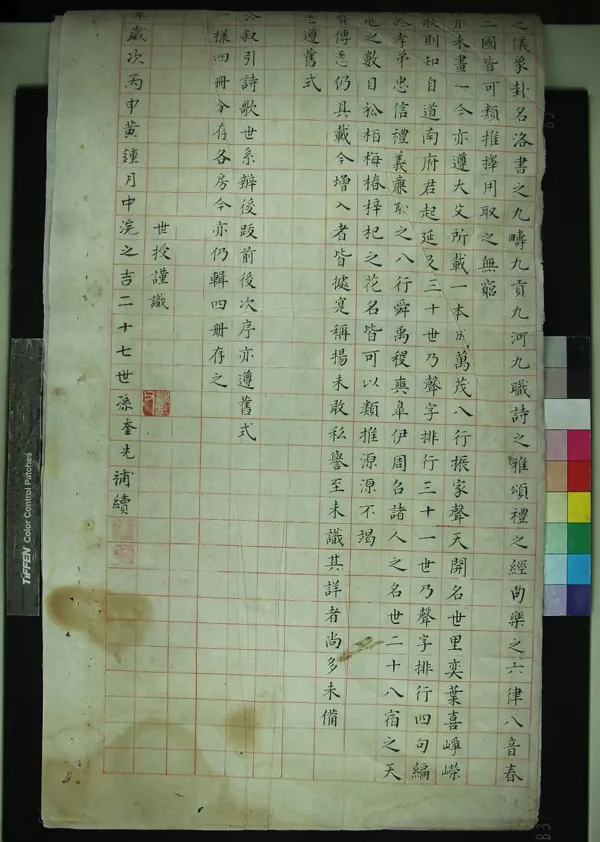 之儀象卦名洛書之九疇九貢九河九職詩之雅頌禮之經曲樂之六律八音春
二國皆可類推擇用取之無窮
亦未畫一今亦遵大父所載一本成萬茂八行振家聲天開名世里奕葉喜崢嶸
敢則知自道南府君起延及三十世乃聲字排行三十一世乃聲字排行四句編
於孝弟忠信禮義廉恥之八行舜禹稷契皋伊周召諸人之名世二十八宿之天
之數目松柏梅椿梓杞之花名皆可以類推源源不竭
傳悉仍具載今增入者皆據寔稱揚未敢私譽至未識其詳者尚多未備
遵舊式
叙引詩歌世系辦後跋前後次序亦遵舊式
一樣四冊分存各房今亦仍輯四冊存之
世授謹識
歲次丙申黃鍾月中浣之吉二十七世孫奎光補續
TIFFEN Color Control Patches
B3